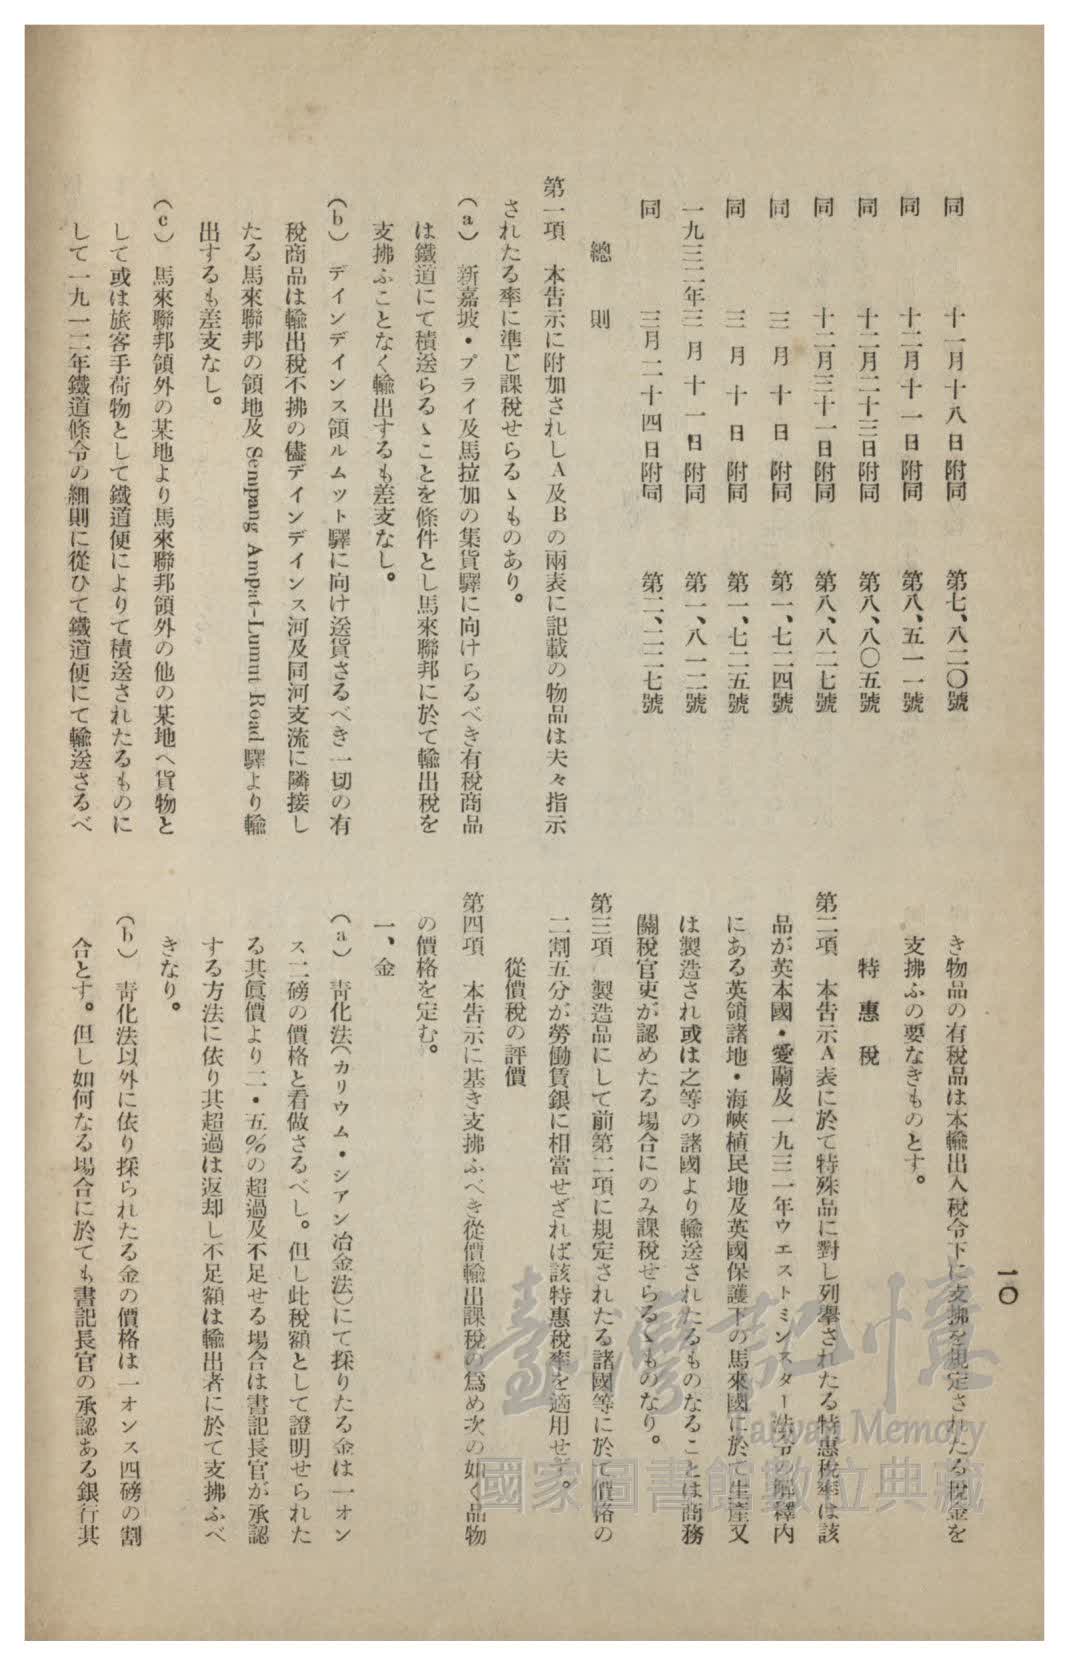 一〇
同　十一月十八日附同　第七、八二〇號
同　十二月十一日附同　第八、五一一號
同　十二月二十三日附同　第八、八〇五號
同　十二月三十一日附同　第八、八二七號
同　三月十日附同　第一、七二四號
同　三月十日附同　第一、七二五號
一九三二年三月十一日附同　第一、八一二號
同　三月二十四日附同　第二、二二七號
總則
第一項　本告示に附加されしA及Bの兩表に記載の物品は夫々指示
されたる率に準じ課稅せらるゝものあり。
(a)　新嘉坡・プライ及馬拉加の集貨驛に向けらるべき有稅商品
は鐵道にて積送らるゝことを條件とし馬來聯邦に於て輸出稅を
支拂ふことなく輸出するも差支なし。
(b)　デインデインス領ルムット驛に向け送貨さるべき一切の有
稅商品は輸出稅不拂の儘デインデインス河及同河支流に隣接し
たる馬來聯邦の領地及 Sempang Ampat-Lumut Road 驛より輸
出するも差支なし。
(c)　馬來聯邦領外の某地より馬來聯邦領外の他の某地へ貨物と
して或は旅客手荷物として鐵道便によりて積送されたるものに
して一九一二年鐵道條令の細則に從ひて鐵道便にて輸送さるべ
き物品の有稅品は本輸出入稅令下に支拂を規定されたる稅金を
支拂ふの要なきものとす。
特惠稅
第二項　本告示A表に於て特殊品に對し列擧されたる特惠稅率は該
品が英本國・愛蘭及一九三一年ウエストミンスター法令の解釋內
にある英領諸地・海峽植民地及英國保護下の馬來國に於て生產又
は製造され或は之等の諸國より輸送されたるものなることは商務
關稅官吏が認めたる場合にのみ課稅せらるゝものなり。
第三項　製造品にして前第二項に規定されたる諸國等に於て價格の
二割五分が勞働賃銀に相當せざれば該特惠稅率を適用せず。
從價稅の評價
第四項　本告示に基き支拂ふべき從價輸出課稅の爲め次の如く品物
の價格を定む。
一、金
(a)　靑化法(カリウム・シアン冶金法)にて採りたる金は一オン
ス二磅の價格と看做さるべし。但し此稅額として證明せられた
る其眞價より二・五%の超過及不足せる場合は書記長官が承認
する方法に依り其超過は返却し不足額は輸出者に於て支拂ふべ
きなり。
(b)　靑化法以外に依り採られたる金の價格は一オンス四磅の割
合とす。但し如何なる場合に於ても書記長官の承認ある銀行其
臺灣記憶
Taiwan Memory
國家圖書館數位典藏